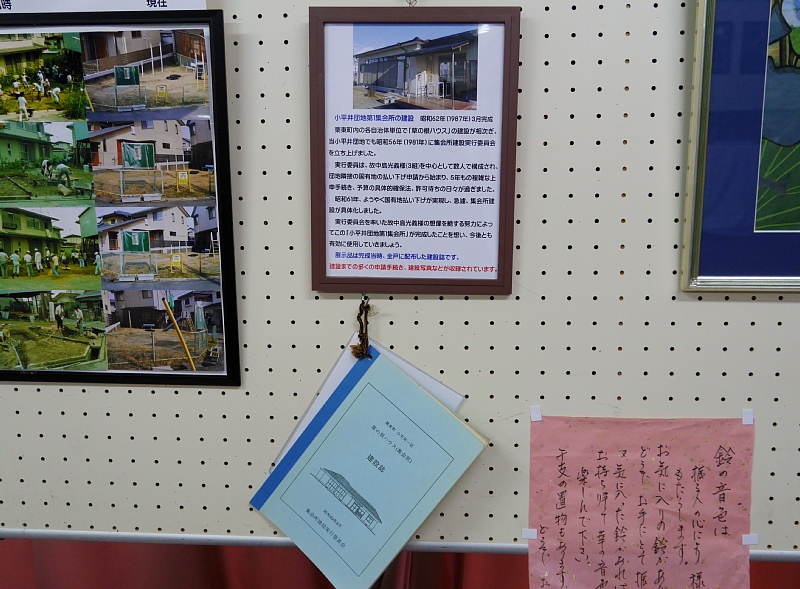 時
現在
小平井団地第1集会所の建設　昭和62年(1987年)3月完成
栗東町内の各自治体単位で「草の根ハウス」の建設が相次ぎ、
当小平井団地でも昭和56年(1981年)に集会所建設実行委員会
を立ち上げました。
実行委員は、故中島光義様(3組)を中心として数人で構成され、
団地隣接の国有地の払い下げ申請から始まり、5年もの複雑な上
申手続き、予算の具体的確保法、許可待ちの日々が過ぎました。
昭和61年、ようやく国有地払い下げが実現し、急遽、集会所建
設が具体化しました。
実行委員会を率いた故中島光義様の想像を絶する努力によっ
てこの「小平井団地第1集会所」が完成したことを想い、今後とも
有効に使用していきましょう。
展示品は完成当時、全戸に配布した建設誌です。
建設までの多くの申請手続き、建設写真などが収録されています。
草の根ハウス(集会所)
建設誌
集会所建設実行委員会
鈴の音色は
お気に入りの鈴があ
どうぞ お手にとって振
又気に入った鈴があれば
お持ち帰りて 幸の音色
楽しんで下さい。
干支の置物もあります。